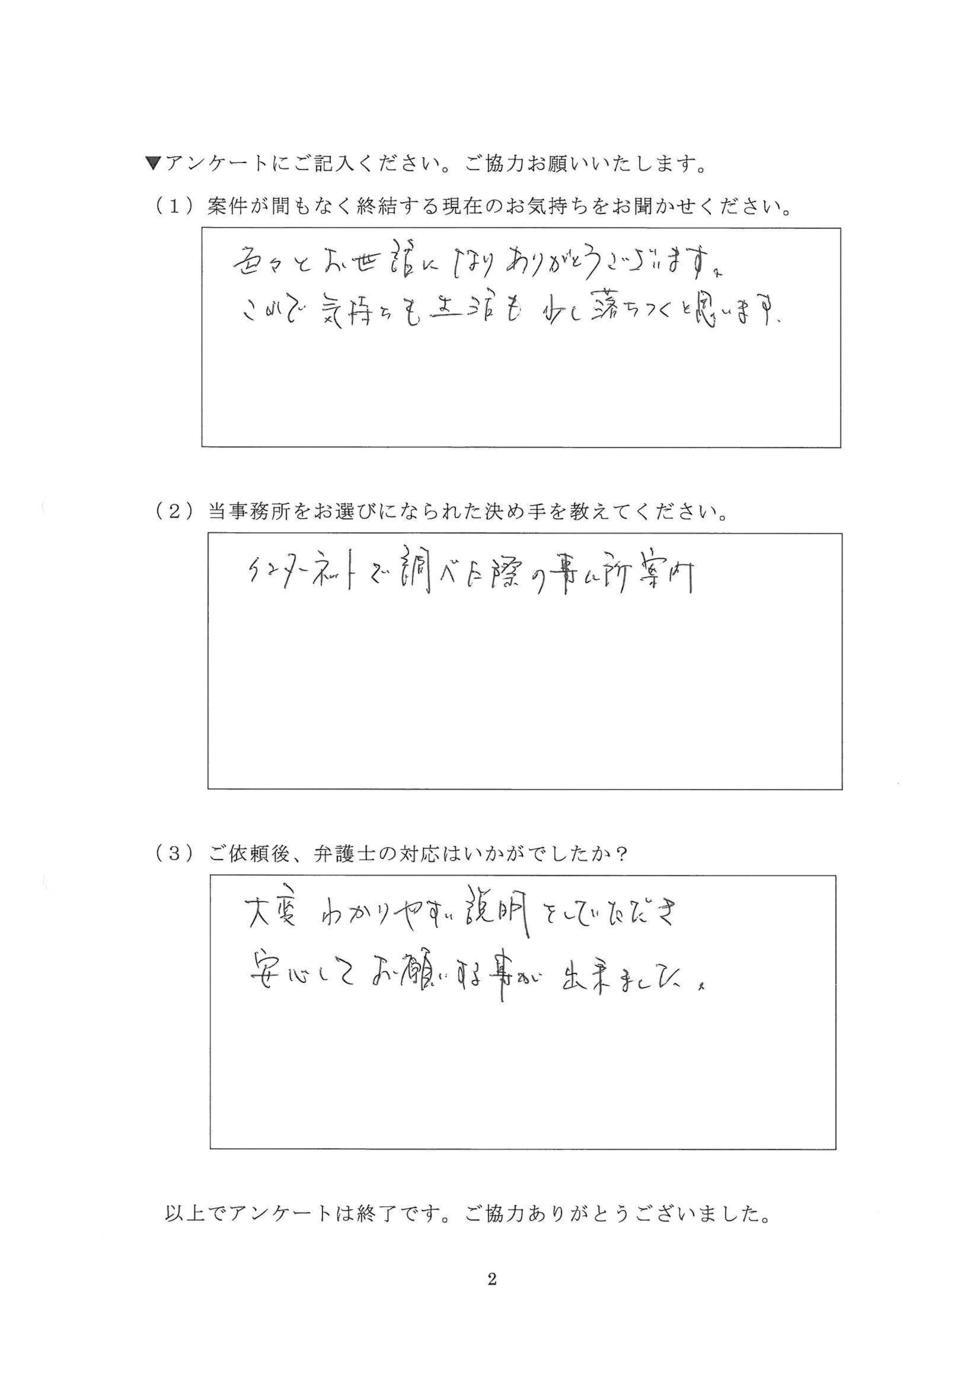 ▼アンケートにご記入ください。ご協力お願いいたします。
（１）案件が間もなく終結する現在のお気持ちをお聞かせください。
色々とお世話になりありがとうございます。
これで気持ちも生活も少し落ちつくと思います.
（２）当事務所をお選びになられた決め手を教えてください。
インターネットで調べた際の事ム所案内
（３）ご依頼後、弁護士の対応はいかがでしたか？
大変わかりやすい説明をしていただき
安心してお願いする事が出来ました。
以上でアンケートは終了です。ご協力ありがとうございました。
2